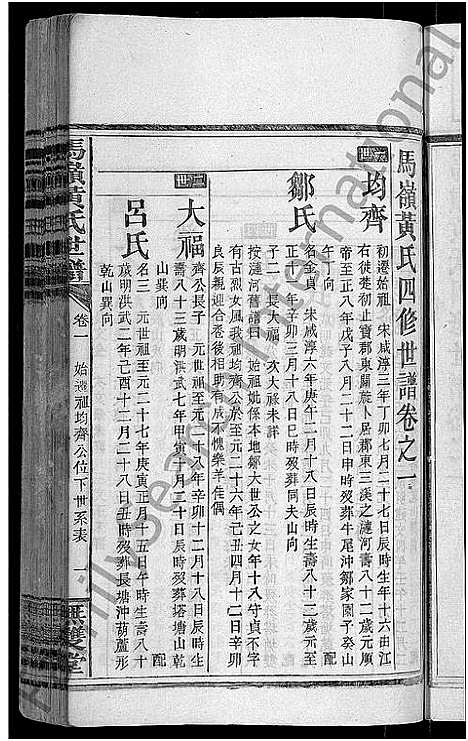 馬嶺黃氏四修世譜卷之一
一世
均齊
初遷始祖 宋咸淳三年丁卯七月二十七日辰時生年十六由江
右徙楚初止寶郡東關旋卜居郡東三溪之漣河壽八十二歲元順
帝至正八年戊子八月二十二日申時歿葬牛尾沖鄒家園子癸山
午丁向 配
鄒氏
名金貞 宋咸淳六年庚午二月十八日辰時生壽八十二歲元至
正十一年辛卯三月十八日巳時歿葬同夫山向
子二 長大福 次大祿未詳
按漣河舊譜曰 始祖妣係本地鄒大世公之女年十八守貞不字
有古烈女風我祖均齊公於至元二十六年己丑四月十二日辛卯
良辰親迎合巹後相助有成不愧樂羊佳偶
二世
大福
齊公長子 元世祖至元二十八年辛卯十二月十八日辰時生
壽八十三歲明洪武七年甲寅十月二十日辰時歿葬塔塘山乾
山巽向 配
呂氏
名三 元世祖至元二十七年庚寅正月十五日午時生壽八十
歲明洪武二年己酉十二月二十八日丑時歿葬長塘沖葫蘆形
乾山巽向
馬嶺黃氏世譜
卷一 始遷祖均齊公位下世系表 一
無雙堂
Hillyseanu International